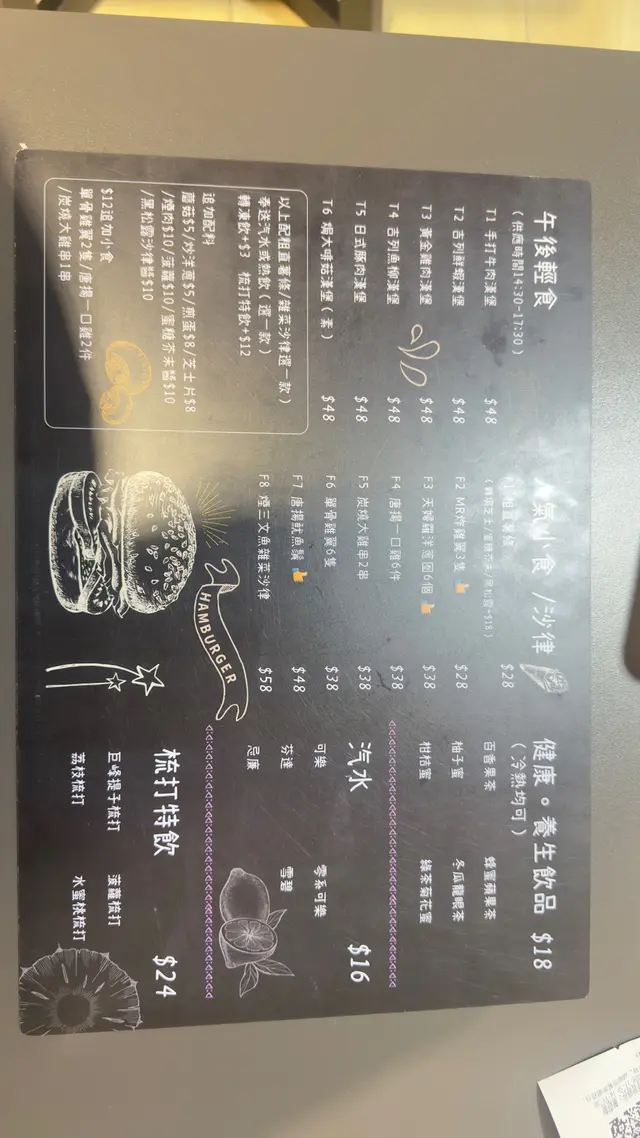 午後輕食
(供應時間14:30-17:30)
T1 手打牛肉漢堡 $48
T2 吉列鮮蝦漢堡 $48
T3 黃金雞肉漢堡 $48
T4 吉列魚柳漢堡 $48
T5 日式豚肉漢堡 $48
T6 焗大啡菇漢堡(素) $48
以上配粗直薯條/雜菜沙律選一款)
奉送汽水或熱飲(選一款)
轉凍飲+$3 梳打特飲+$12
追加配料
蘑菇$5/炒洋蔥$5/煎蛋$8/芝士片$8
/煙肉$10/菠蘿$10/蜜糖芥末醬$10
/黑松露沙律醬$10
$12追加小食
單骨雞翼2隻/唐揚一口雞2件
/炭燒大雞串1串
人氣小食/沙律
粗直薯條 $28
F2 MR炸雞翼3隻 $28
F3 天婦羅洋蔥圈6個 $38
F4 唐揚一口雞6件 $38
F5 炭燒大雞串2串 $38
F6 單骨雞翼6隻 $38
F7 唐揚魷魚鬚 $48
F8 煙三文魚雜菜沙律 $58
HAMBURGER
健康。養生飲品 $18
(冷熱均可)
百香果茶 蜂蜜蘋果茶
柚子蜜 冬瓜龍眼茶
柑桔蜜 綠茶菊花蜜
汽水 $16
可樂 零系可樂
芬達 雪碧
忌廉
梳打特飲 $24
巨峰提子梳打 菠蘿梳打
荔枝梳打 水蜜桃梳打